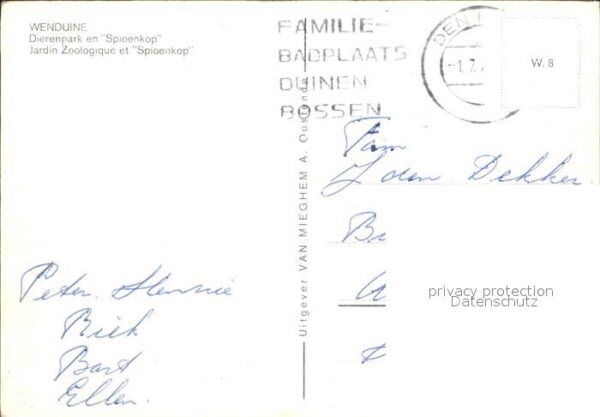 WENDUINE
Dierenpark en "Spioenkop"
Jardin Zoologique et "Spioenkop"
FAMILIE-
BADPLAATS
DUINEN
BOSSEN
DEN
-1.7.
W. 8
Uitgever VAN MIEGHEM A. Oostende
Fam
J den Dekker
Br
privacy protection
Datenschutz
Peter. Hennie
Riek
Bart
Ellen.